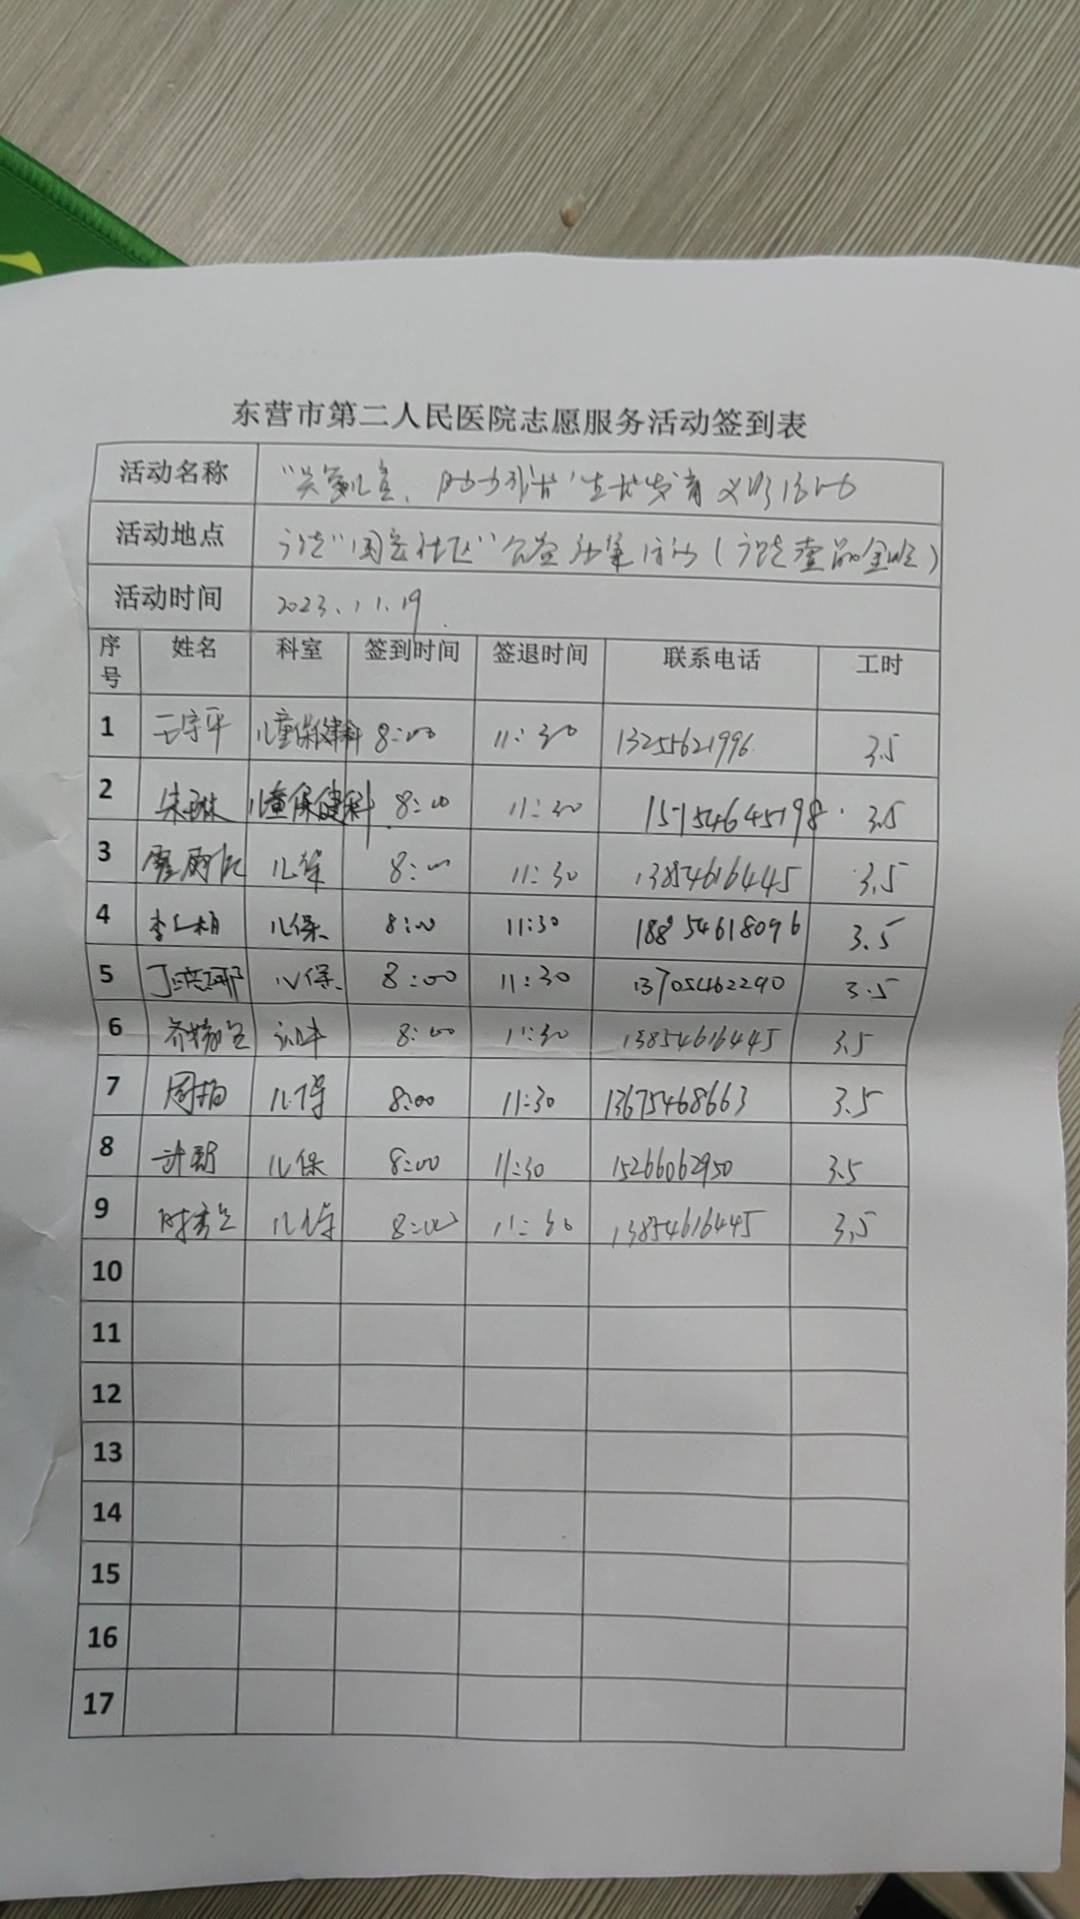 东营市第二人民医院志愿服务活动签到表
活动名称 "关爱儿童、助力成长"生长发育义诊活动
活动地点 "国安社区"公益
活动时间 2023.11.19
序号 姓名 科室 签到时间 签退时间 联系电话 工时
1 王守平 儿童保健科 8:00 11:30 13255621996 3.5
2 朱琳 儿童保健科 8:00 11:30 15154645198 3.5
3 儿保 8:00 11:30 13854616445 3.5
4 李 儿保 8:00 11:30 18854618096 3.5
5 儿保 8:00 11:30 13705462290 3.5
6 8:00 11:30 13854616445 3.5
7 周 儿保 8:00 11:30 13675468663 3.5
8 许 儿保 8:00 11:30 15266062950 3.5
9 儿保 8:00 11:30 13854616445 3.5
10
11
12
13
14
15
16
17